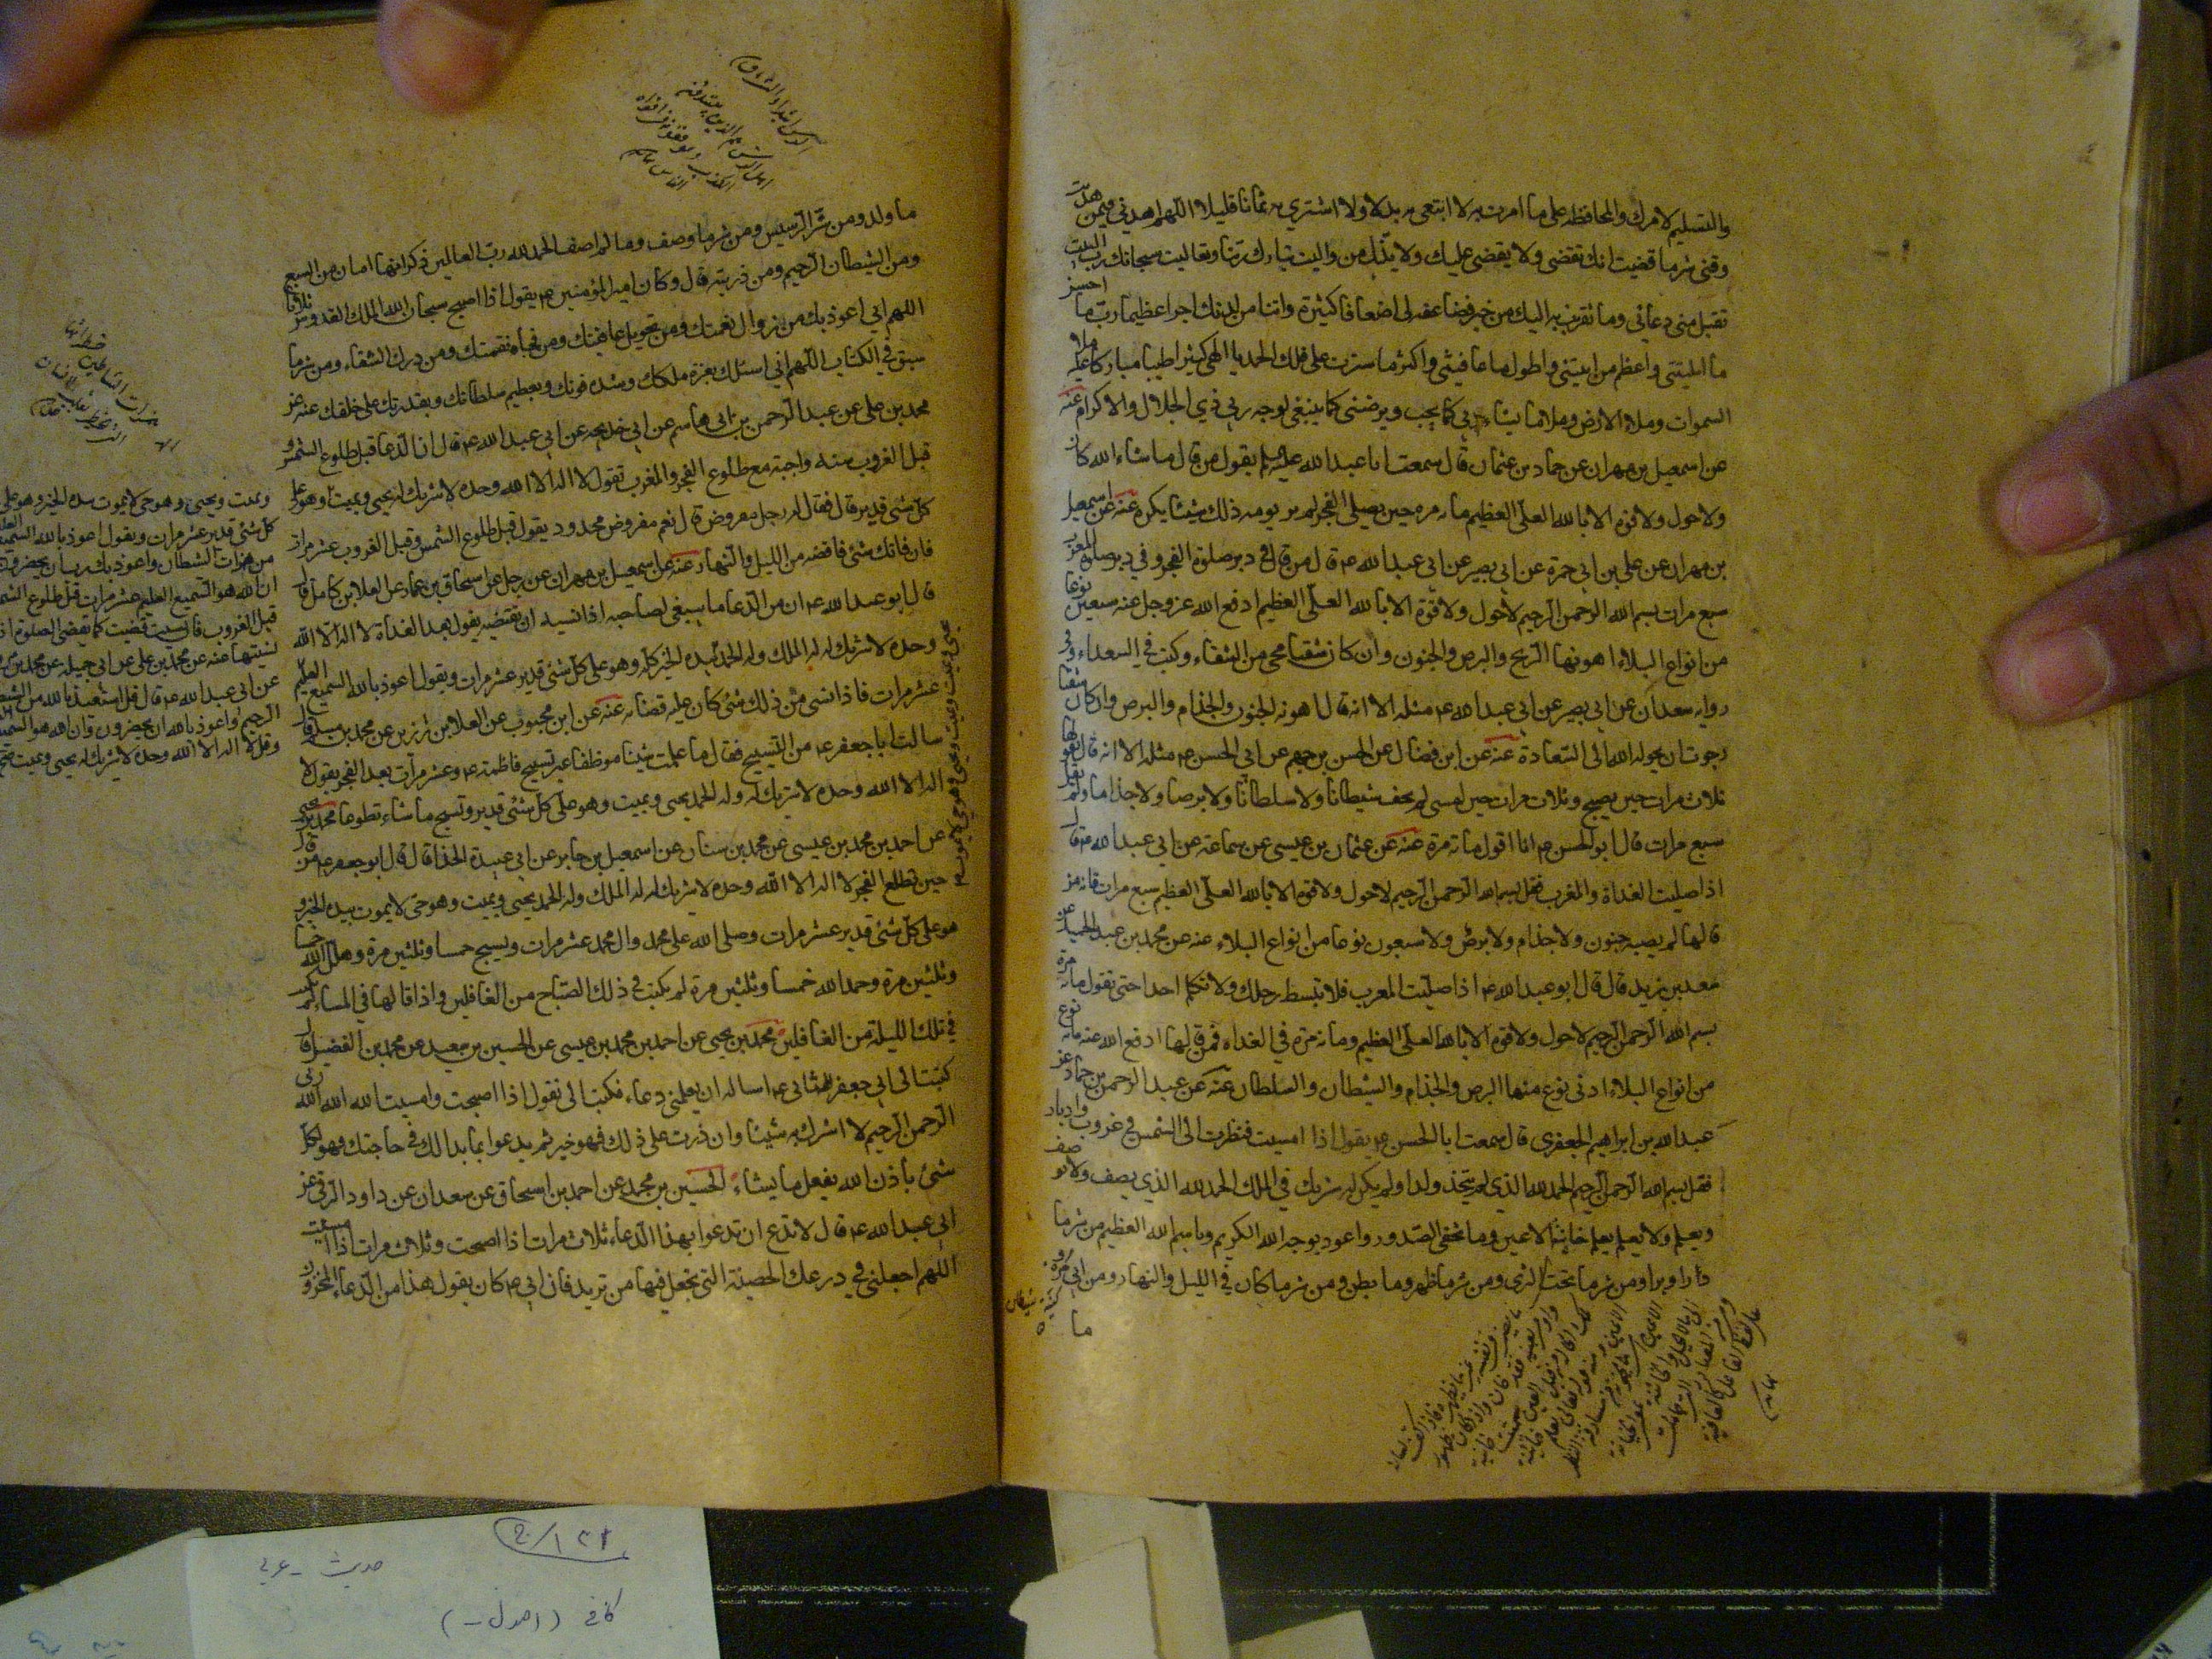 والتسليم لامرك والمحافظة على ما امرت به لا ابتغي به بدلا ولا اشتري به ثمنا قليلا اللهم اهدني فيمن هديت
وقني شر ما قضيت انك تقضي ولا يقضى عليك ولا يذل من واليت تباركت ربنا وتعاليت سبحانك رب البيت
تقبل مني دعائي وما تقربت به اليك من خير فضاعفه لي اضعافا كثيرة واتنا من لدنك اجرا عظيما رب ما احسن
ما ابليتني واعظم من اعطيتني واطول ما عافيتني واكثر ما سترت علي فلك الحمد يا الهي كثيرا طيبا مباركا عليه ملا
السموات وملاء الارض وملا ما يشاء ربي كما يحب ويرضى كما ينبغي لوجه ربي ذي الجلال والاكرام عنه
عن اسمعيل بن مهران عن حماد بن عثمان قال سمعت ابا عبد الله عليه السلم يقول من قال ما شاء الله كان
ولا حول ولا قوة الا بالله العلي العظيم مائة مرة حين يصلي الفجر لم ير يومه ذلك شيئا يكره عنه عن اسمعيل
بن مهران عن علي بن ابي حمزة عن ابي بصير عن ابي عبد الله ع قال من قال في دبر صلوة الفجر وفي دبر صلوة المغرب
سبع مرات بسم الله الرحمن الرحيم لا حول ولا قوة الا بالله العلي العظيم ادفع الله عز وجل عنه سبعين نوعا
من انواع البلاء اهونها الريح والبرص والجنون وان كان شقيا محي من الشقاء وكتب في السعداء وفي
رواية سعدان عن ابي بصير عن ابي عبد الله ع مثله الا انه قال اهونه الجنون والجذام والبرص وان كان شقيا
رجوت ان يحوله الله الى السعادة عنه عن ابن فضال عن الحسن بن جهم عن ابي الحسن ع مثله الا انه قال يقولها
ثلاث مرات حين يصبح وثلاث مرات حين يمسي لم يخف شيطانا ولا سلطانا ولا برصا ولا جذاما ولم يقل
سبع مرات قال ابو الحسن ع انا اقول مائة مرة عنه عن عثمان بن عيسى عن سماعة عن ابي عبد الله ع قال
اذا صليت الغداة والمغرب فقل بسم الله الرحمن الرحيم لا حول ولا قوة الا بالله العلي العظيم سبع مرات فانه من
قالها لم يصبه جنون ولا جذام ولا برص ولا سبعون نوعا من انواع البلاء عنه عن محمد بن عبد الحميد عن
سعد بن زيد قال قال ابو عبد الله ع اذا صليت المغرب فلا تبسط رجلك ولا تكلم احدا حتى تقول مائة مرة
بسم الله الرحمن الرحيم لا حول ولا قوة الا بالله العلي العظيم ومائة مرة في الغداة فمن قالها ادفع الله عنه مائة نوع
من انواع البلاء ادنى نوع منها البرص والجذام والشيطان والسلطان عنه عن عبد الرحمن بن حماد عن
عبد الله بن ابراهيم الجعفري قال سمعت ابا الحسن ع يقول اذا امسيت فنظرت الى الشمس في غروب وادبار
فقل بسم الله الرحمن الرحيم الحمد لله الذي لم يتخذ ولدا ولم يكن له شريك في الملك الحمد لله الذي يصف ولا يوصف
ويعلم ولا يعلم يعلم خائنة الاعين وما تخفي الصدور واعوذ بوجه الله الكريم وباسم الله العظيم من شر ما
ذرا وبرا ومن شر ما تحت الثرى ومن شر ما ظهر وما بطن ومن شر ما كان في الليل والنهار ومن ابي مرة
ما
ما ولد ومن شر الرسيس ومن شر ما وصف وما لم اصف الحمد لله رب العالمين ذكر انها امان من السبع
ومن الشيطان الرجيم ومن ذريته قال وكان امير المؤمنين ع يقول اذا اصبح سبحان الله الملك القدوس ثلاثا
اللهم اني اعوذ بك من زوال نعمتك ومن تحويل عافيتك ومن فجاة نقمتك ومن درك الشقاء ومن شر ما
سبق في الكتاب اللهم اني اسئلك بعزة ملكك وشدة قوتك وبعظيم سلطانك وبقدرتك على خلقك عنه عن
محمد بن علي عن عبد الرحمن بن ابي هاشم عن ابي خديجه عن ابي عبد الله ع قال ان الدعا قبل طلوع الشمس و
قبل الغروب سنة واجبة مع طلوع الفجر والمغرب تقول لا اله الا الله وحده لا شريك له يحيي ويميت وهو على
كل شئ قدير قال فقال له رجل مفروض قال نعم مفروض محدود يقول قبل طلوع الشمس وقبل الغروب عشر مرات
فان فاتك شئ فاقضه من الليل والنهار عنه عن اسمعيل بن مهران عن رجل عن اسحاق بن عمار عن العلا بن كامل قال
قال ابو عبد الله ع ان من الدعا ما ينبغي لصاحبه اذا نسيه ان يقضيه يقول بعد الغداة لا اله الا الله
وحده لا شريك له له الملك وله الحمد بيده الخير كله وهو على كل شئ قدير عشر مرات ويقول اعوذ بالله السميع العليم
عشر مرات فاذا نسي من ذلك شئ كان عليه قضائه عنه عن ابن محبوب عن العلا بن رزين عن محمد بن مسلم قال
سالت ابا جعفر ع من التسبيح فقال ما علمت شيئا موظفا غير تسبيح فاطمة ع وعشر مرات بعد الفجر يقول لا
اله الا الله وحده لا شريك له وله الحمد يحيي ويميت وهو على كل شئ قدير وتسبح ما شاء تطوعا محمد بن يحيى
عن احمد بن محمد بن عيسى عن محمد بن سنان عن اسمعيل بن جابر عن ابي عبيدة الحذا قال قال ابو جعفر ع من قال
حين تطلع الفجر لا اله الا الله وحده لا شريك له له الملك وله الحمد يحيي ويميت وهو حي لا يموت بيده الخير و
هو على كل شئ قدير عشر مرات وصلى الله على محمد وال محمد عشر مرات ويسبح خمسا وثلثين مرة وهلل الله خمسا
وثلثين مرة وحمد الله خمسا وثلثين مرة لم يكتب في ذلك الصباح من الغافلين واذا قالها في المساء لم يكتب
في تلك الليلة من الغافلين محمد بن يحيى عن احمد بن محمد بن عيسى عن الحسين بن سعيد عن محمد بن الفضيل قال
كتبت الى ابي جعفر الثاني ع اساله ان يعلمني دعاء فكتب الي تقول اذا اصبحت وامسيت الله الله الله ربي
الرحمن الرحيم لا اشرك به شيئا وان زدت على ذلك فهو خير ثم يدعوا بما بدا لك في حاجتك فهو لكل
شئ باذن الله يفعل ما يشاء الحسين بن محمد عن احمد بن اسحاق عن سعدان عن داود الرقي عن
ابي عبد الله ع قال لا تدع ان تدعوا بهذا الدعاء ثلاث مرات اذا اصبحت وثلاث مرات اذا امسيت
اللهم اجعلني في درعك الحصينة التي تجعل فيها من تريد فان ابي ع كان يقول هذا من الدعاء المخزون
ويميت ويحيي وهو حي لا يموت بيده الخير وهو على
كل شئ قدير عشر مرات ويقول اعوذ بالله السميع العليم
من همزات الشطان واعوذ بك رب ان يحضرون
ان الله هو السميع العليم عشر مرات قبل طلوع الشمس
قبل الغروب فان نسيت قضيت كما تقضي الصلوة اذا
نسيتها عنه عن محمد بن علي عن ابي جميلة عن محمد بن
عن ابي عبد الله ع قال قل استعيذ بالله من الشيطان
الرجيم واعوذ بالله ان يحضرون وان الله هو السميع
وقل لا اله الا الله وحده لا شريك له يحيي ويميت
١٢١/ج
حديث - عربي
كافى (اصول -)